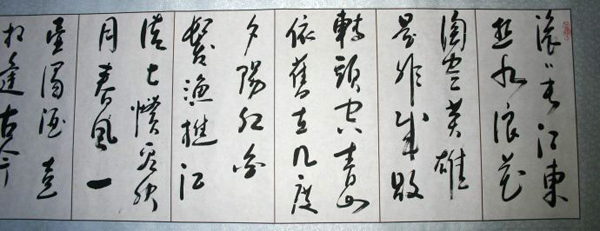 滚〻长江東
逝水浪花
淘尽英雄
是非成敗
轉頭空青山
依舊在几度
夕陽红白
髮漁樵江
渚上慣看秋
月春風一
壺濁酒喜
相逢古今